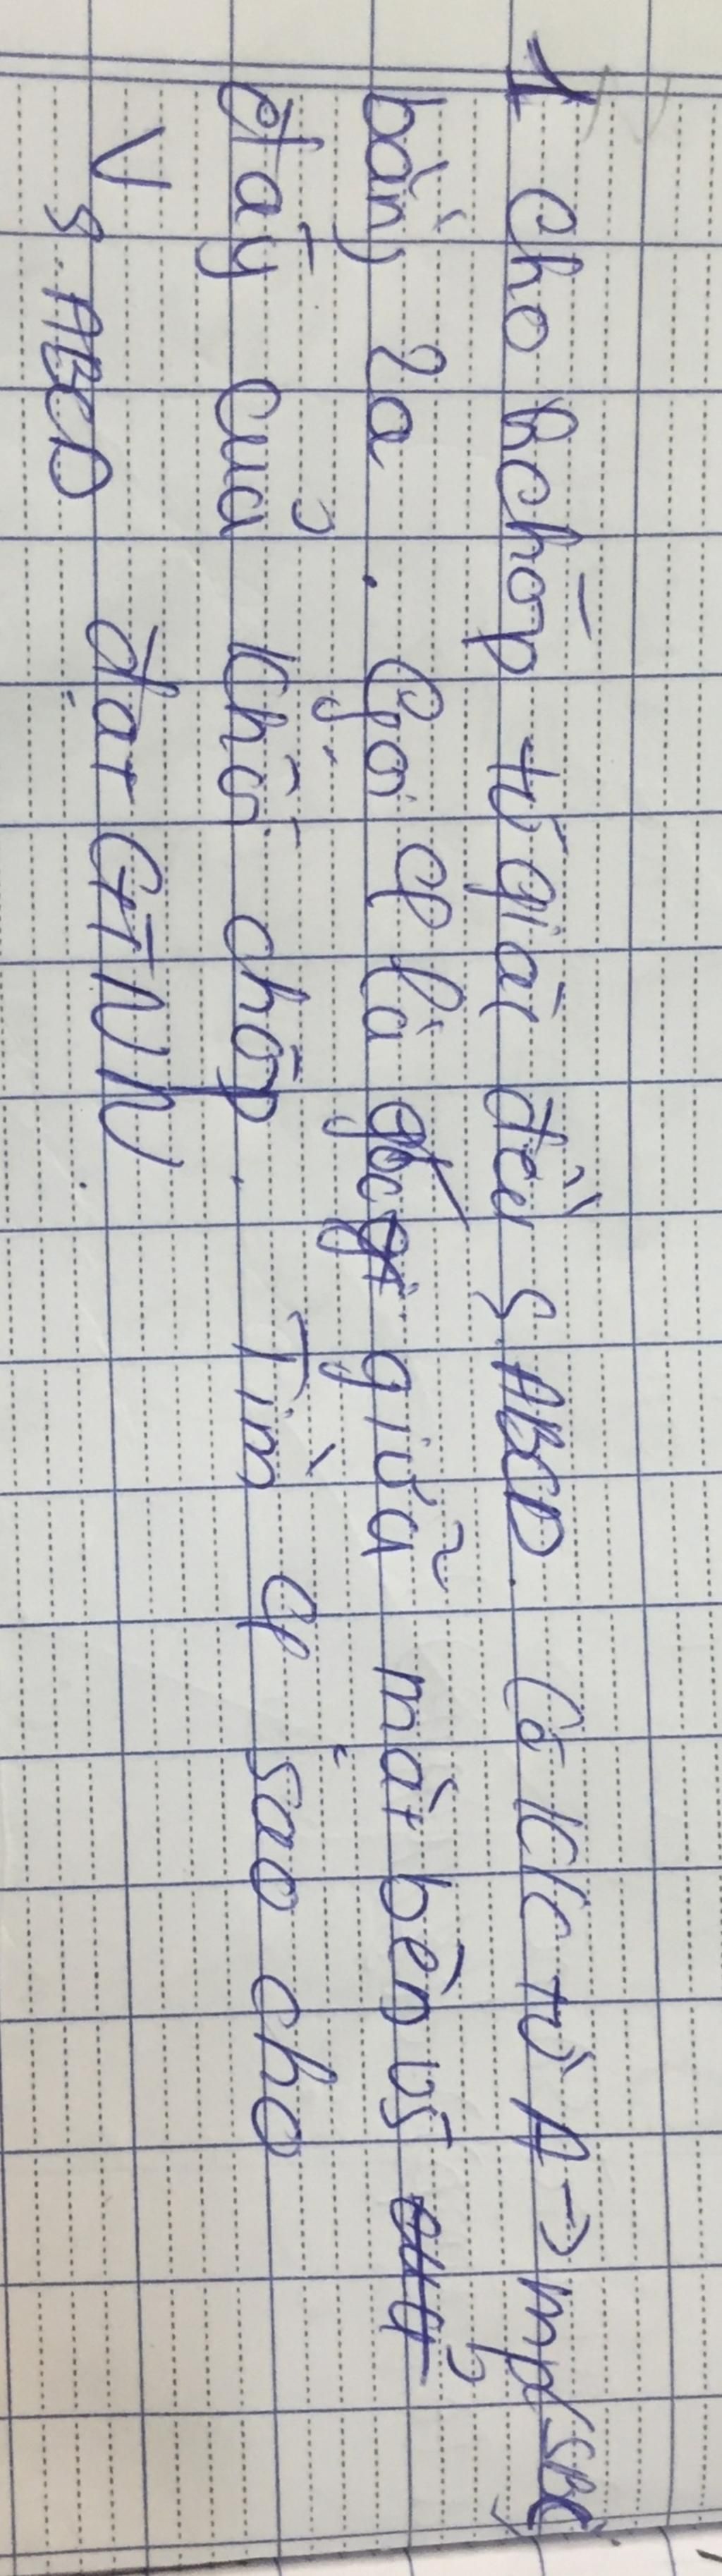 1 Cho hchóp tứ giác đều S.ABCD. Có k/c từ A → mp(SBC)
bằng 2a. Gọi φ là góc giữa mặt bên vs
đáy của khối chóp. Tìm φ sao cho
V S.ABCD đạt GTNN